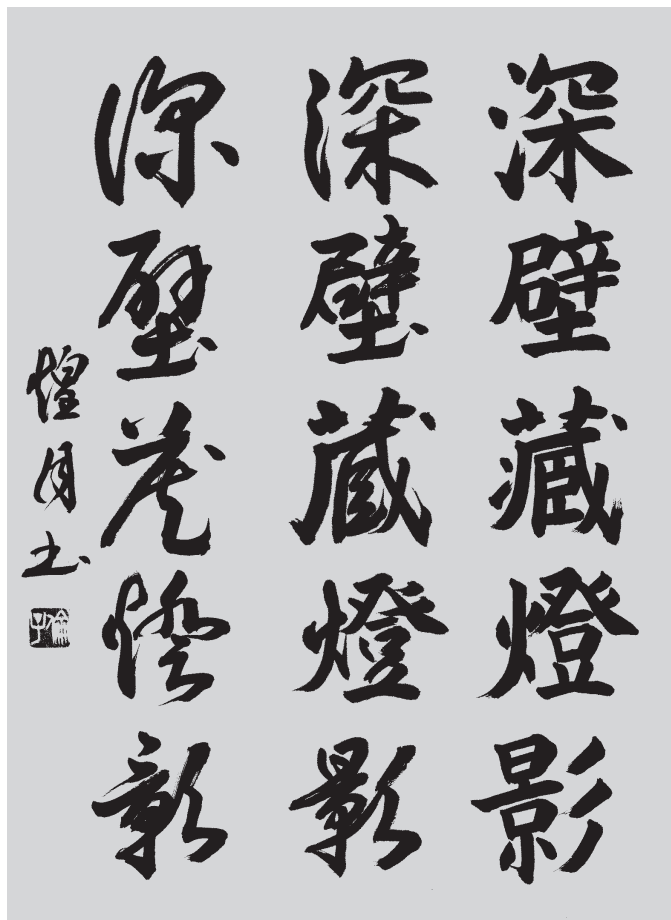 深壁藏燈影
深壁蔵燈影
深壁蔵燈影
煌月書